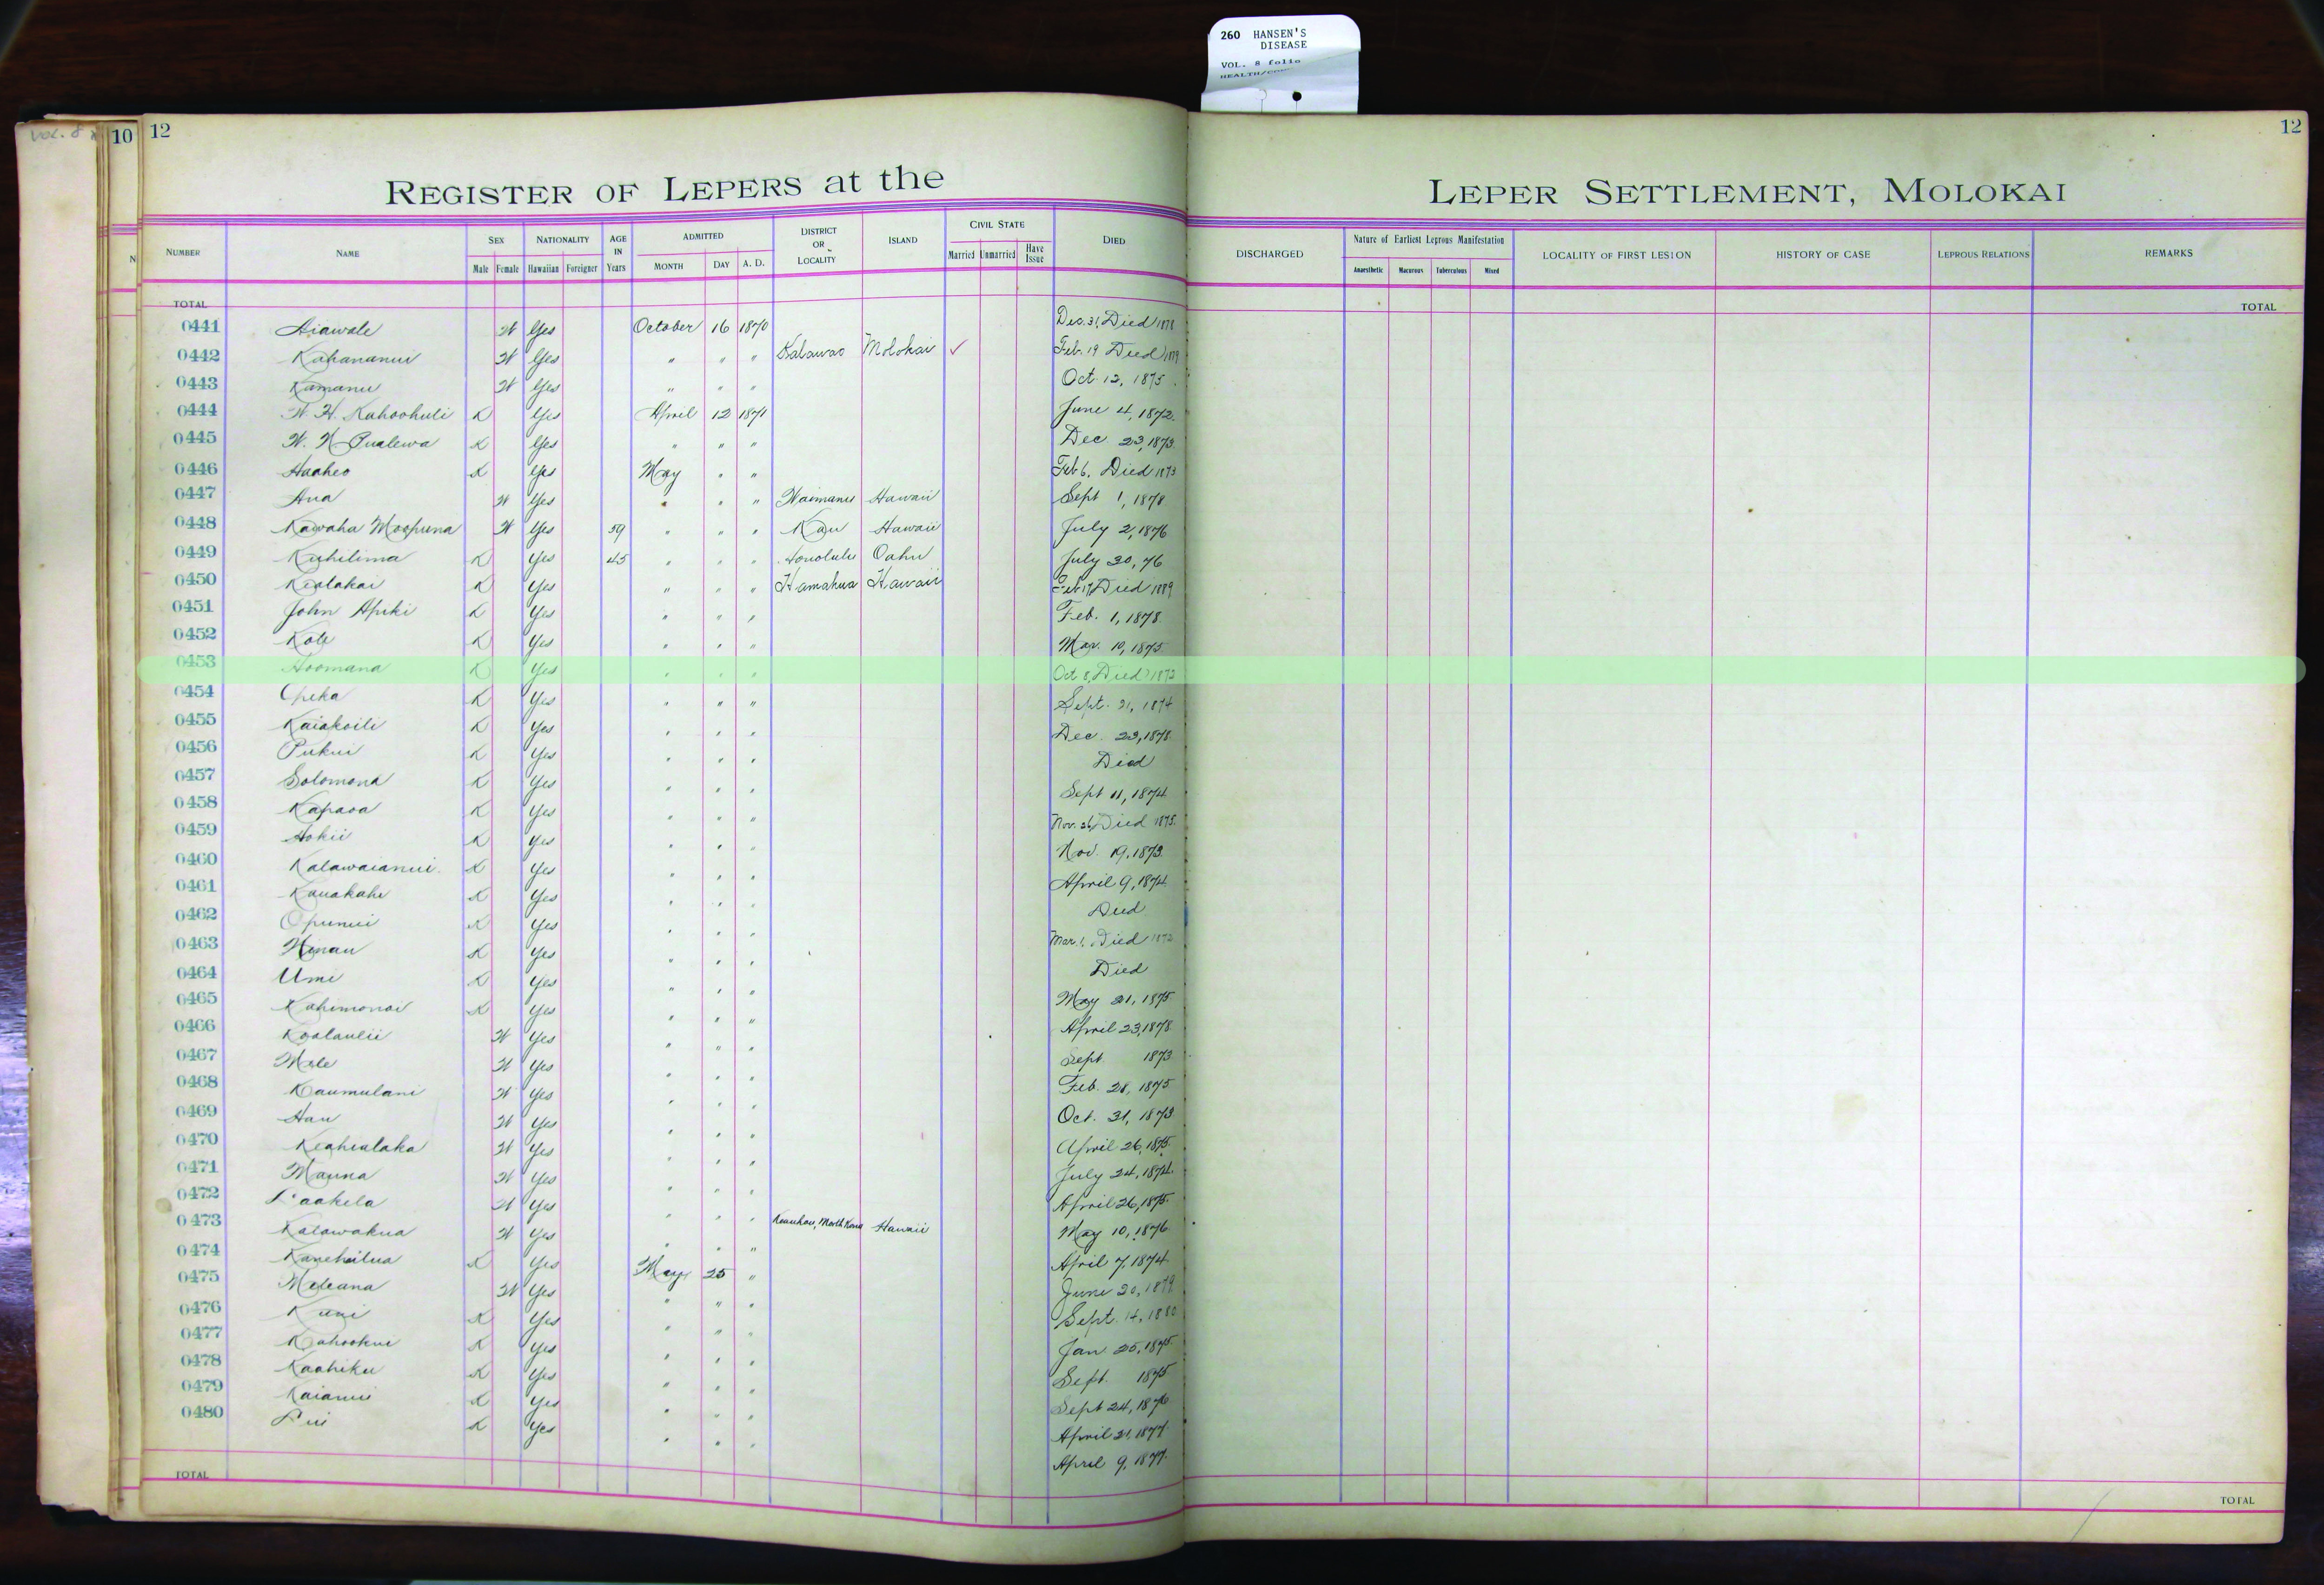 260 HANSEN'S
DISEASE
VOL. 8 folio
VOL. 8
10 12 12
REGISTER OF LEPERS at the LEPER SETTLEMENT, MOLOKAI
NUMBER NAME SEX NATIONALITY AGE IN Years ADMITTED DISTRICT OR LOCALITY ISLAND CIVIL STATE DIED DISCHARGED Nature of Earliest Leprous Manifestation LOCALITY OF FIRST LESION HISTORY OF CASE LEPROUS RELATIONS REMARKS
Male Female Hawaiian Foreigner MONTH DAY A. D. Married Unmarried Have Issue Anaesthetic Macurous Tuberculous Mixed
TOTAL TOTAL
0441 Aiawale W Yes October 16 1870 Dec. 31, Died 1878
0442 Kahananui W Yes " " " Kalawao Molokai ✓ Feb. 19 Died
0443 Kamanu W Yes " " " Oct. 12, 1875
0444 W. H. Kahoohuli K Yes April 12 1871 June 4, 1872
0445 W. N. Pualewa K Yes " " " Dec 23, 1873
0446 Haaheo K Yes May " " Feb 6, Died 1873
0447 Ana W Yes " " " Waimanu Hawaii Sept 1, 1878
0448 Kawaha Moopuna W Yes 59 " " " Kau Hawaii July 2, 1876
0449 Kuhilima K Yes 45 " " " Honolulu Oahu July 30, 76
0450 Kealakai K Yes " " " Hamakua Hawaii Feb 17, Died 1889
0451 John Apiki K Yes " " " Feb. 1, 1878
0452 Kole K Yes " " " Mar. 10, 1875
0453 Hoomana K Yes " " " Oct 8, Died 1872
0454 Opeka K Yes " " " Sept. 21, 1874
0455 Kaiakoili K Yes " " " Dec. 23, 1878
0456 Pukui K Yes " " " Died
0457 Solomona K Yes " " " Sept 11, 1874
0458 Kapaoa K Yes " " " Nov. 26, Died 1875
0459 Hokii K Yes " " " Nov. 19, 1873
0460 Kalawaianui K Yes " " " April 9, 1874
0461 Kauakahi K Yes " " " Died
0462 Opunui K Yes " " " Mar. 1, Died 1872
0463 Winau K Yes " " " Died
0464 Umi K Yes " " " May 21, 1875
0465 Kahimonoi K Yes " " " April 23, 1878
0466 Koolaulii W Yes " " " Sept 1873
0467 Mele W Yes " " " Feb. 28, 1875
0468 Kaumulani W Yes " " " Oct. 31, 1873
0469 Hau W Yes " " " April 26, 1875
0470 Keahialaka W Yes " " " July 24, 1874
0471 Mauna W Yes " " " April 26, 1875
0472 Laakela W Yes " " " Keauhou, North Kona Hawaii May 10, 1876
0473 Kalawakua W Yes " " " April 7, 1874
0474 Kanehailua K Yes May 25 " June 20, 1879
0475 Meleana W Yes " " " Sept. 14, 1880
0476 Kuni K Yes " " " Jan 25, 1875
0477 Kahookui K Yes " " " Sept. 1875
0478 Kaahiku K Yes " " " Sept 24, 1876
0479 Kaianui K Yes " " " April 21, 1877
0480 Lui K Yes " " " April 9, 1877
TOTAL TOTAL